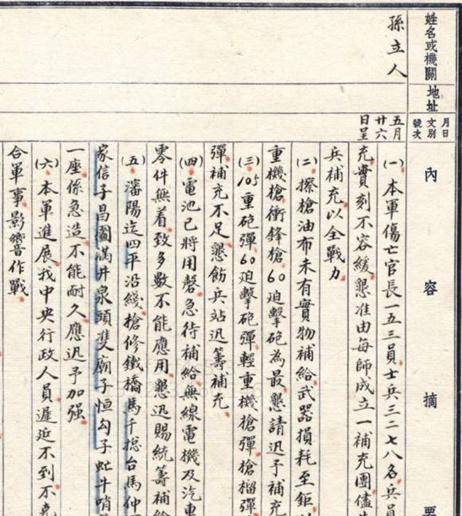 姓名或機關
地址
月日
文別
號次
內容摘要
孫立人
五月
廿六
日呈
(一)本軍傷亡官長一五三員士兵三二七八名兵員
充實刻不容緩懇准由每師成立一補充團儘
兵補充以全戰力
(二)擦槍油布未有實物補給武器損耗至鉅
重機槍衝鋒槍60迫擊砲為最懇請迅予補充
(三)105重砲彈60迫擊砲彈輕重機槍彈槍榴彈
彈補充不足懇飭兵站迅籌補充
(四)電池已將用罄急待補給無線電機及汽車
零件無着致多數不能應用懇迅賜統籌補給
(五)瀋陽迄四平沿綫搶修鐵橋馬千總台馬仲
家信子昌圖滿井泉頭雙廟子恒勾子虻牛哨
一座係急造不能耐久應迅予加強
(六)本軍進展我中央行政人員遲延不到不
合軍事影響作戰